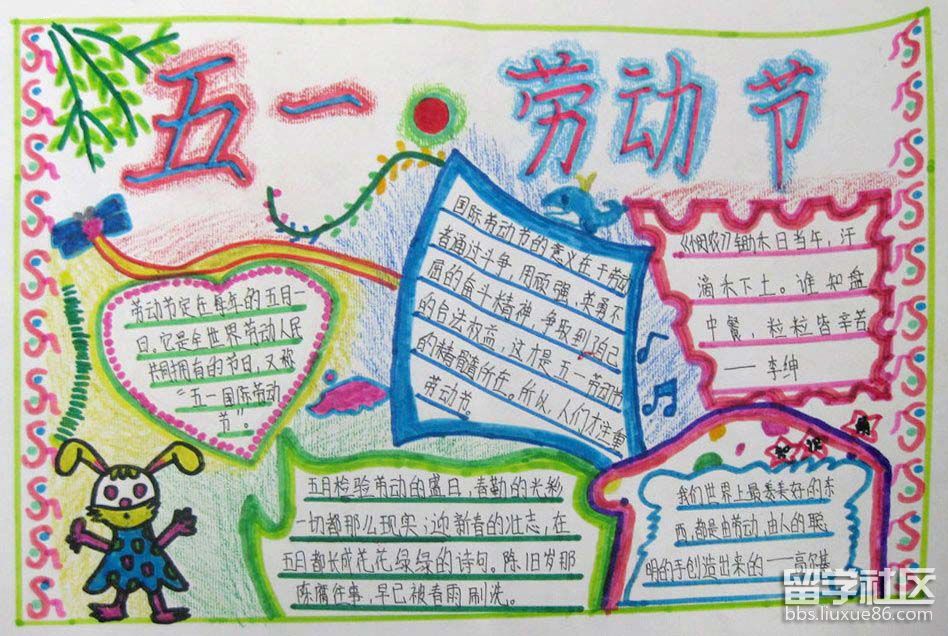 五一 劳动节
劳动节定在每年的五月一
日。它是全世界劳动人民
共同拥有的节日，又被
“五一国际劳动
节”。
国际劳动节的意义在于劳动
者通过斗争，用顽强、英勇不
屈的奋斗精神，争取到了自己
的合法权益，这才是五一劳动节
的精髓所在。所以，人们才注重
劳动节。
《悯农》锄禾日当午，汗
滴禾下土。谁知盘
中餐，粒粒皆辛苦
——李绅
五月检验劳动的盛日，春勤的光
一切都那么现实；迎新春的壮志，在
五月都长成花花绿绿的诗句。陈旧岁那
陈腐往事，早已被春雨刷洗。
知识
我们世界上最美好的东
西，都是由劳动，由人的聪
明的手创造出来的——高尔基
留学社区
bbs.liuxue86.com